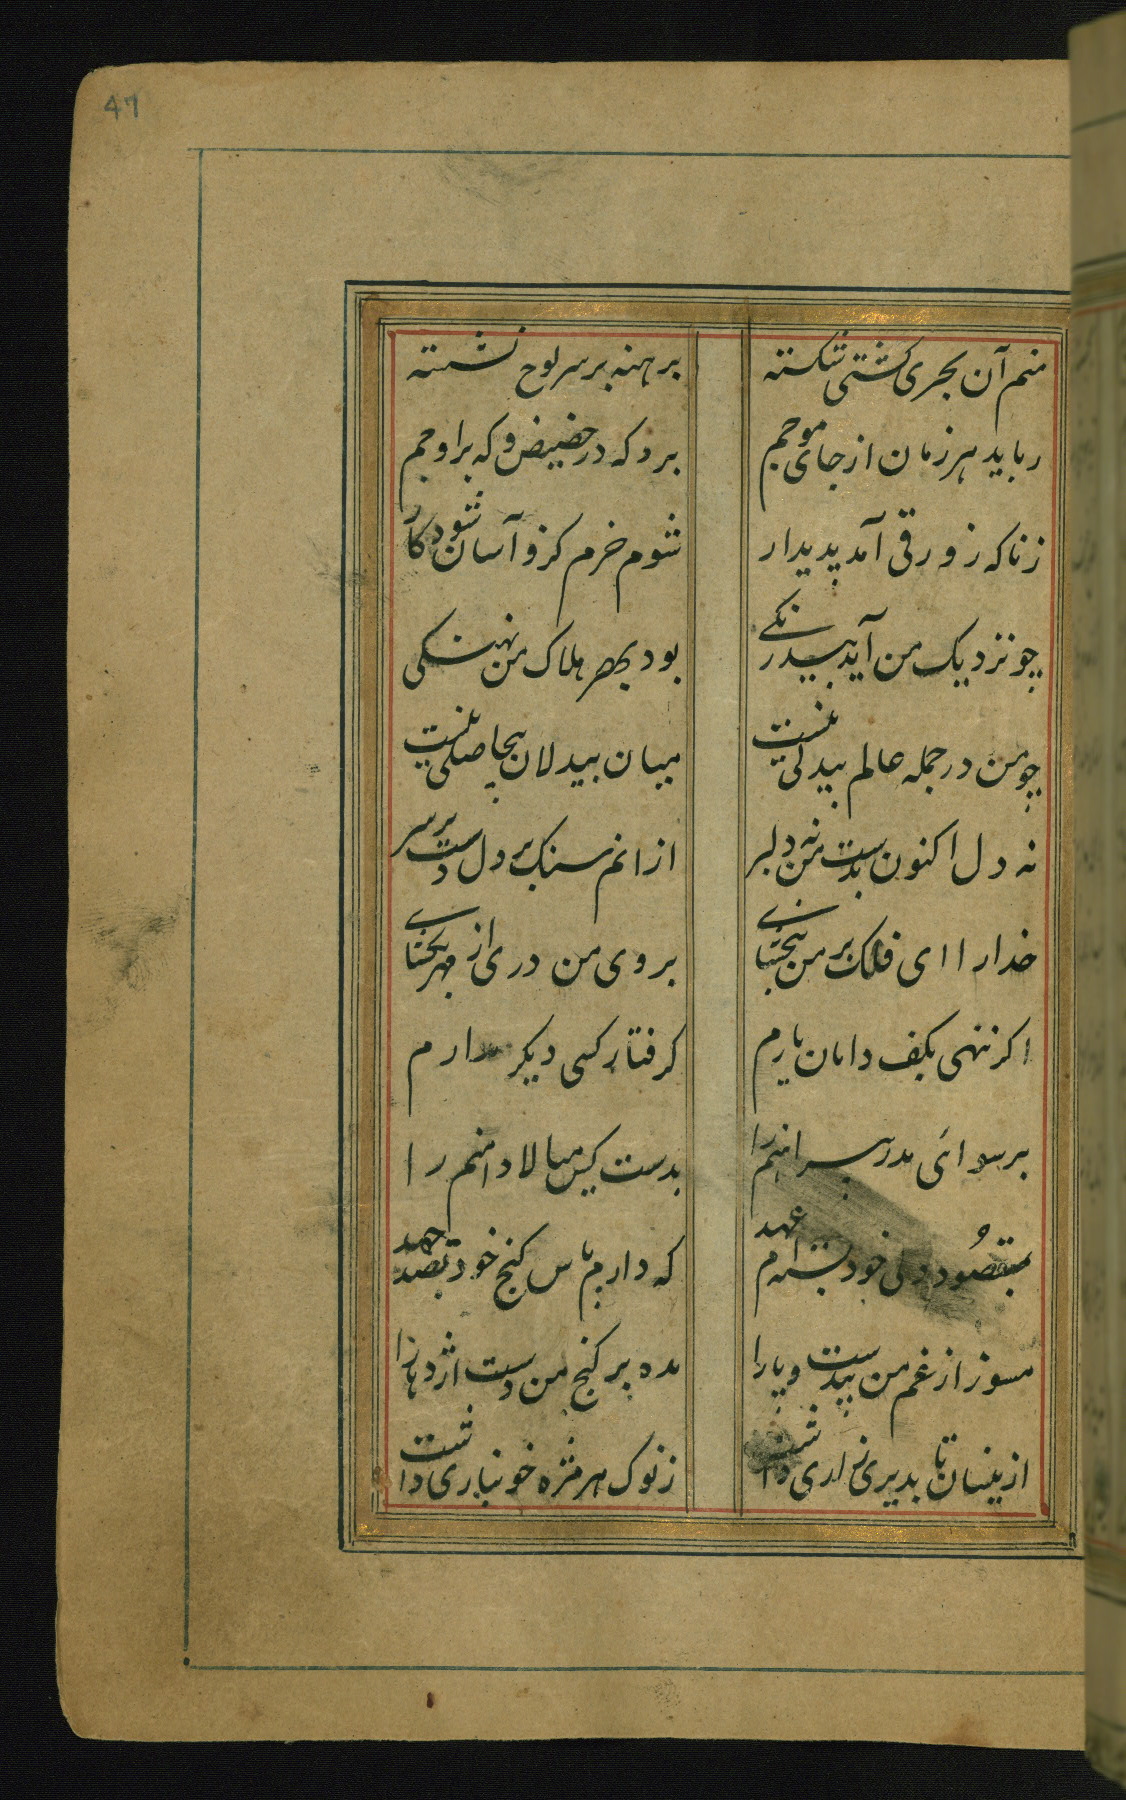 47
منم آن بحری کشتی شکسته برهنه بر سر لوح نشسته
رباید هر زمان از جای موجم برد که در حضیض و که بر اوجم
ز ناکه زورقی آمد پدیدار شوم خرم کزو آسان شود کار
چو نزدیک من آید بیدرنکے بود بهر هلاک من نهنکی
چو من در جمله عالم بیدلی نیست میان بیدلان بیحاصلی نیست
نه دل اکنون بدست من نه دلبر از انم سنک بر دل دست بر سر
خدارا ای فلک بر من ببخشاے بروی من دری از مهر بکشاے
اکر ننهی بکف دامان یارم کرفتار کسی دیکر مدارم
برسوائی مدر پیراهنم را بدست کس میالا دامنم را
بمقصود دلی خود بسته ام عهد که دارم پاس کنج خود بصد جهد
مسوز از غم من بیدست و پا را مده بر کنج من دست اژدها را
ازینسان تا بدیری زاری داشت ز نوک هر مژه خونباری داشت